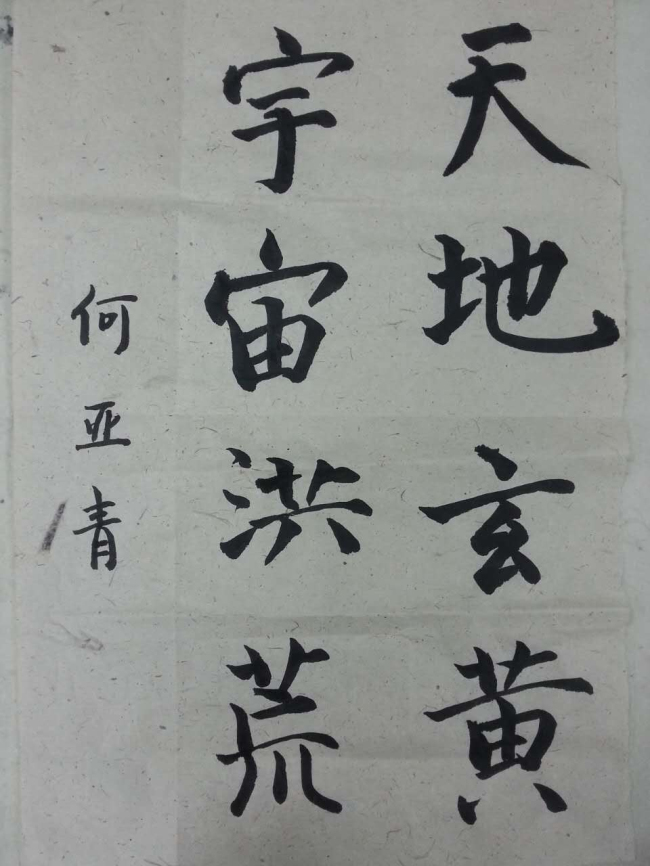 天地玄黄
宇宙洪荒
何亚青